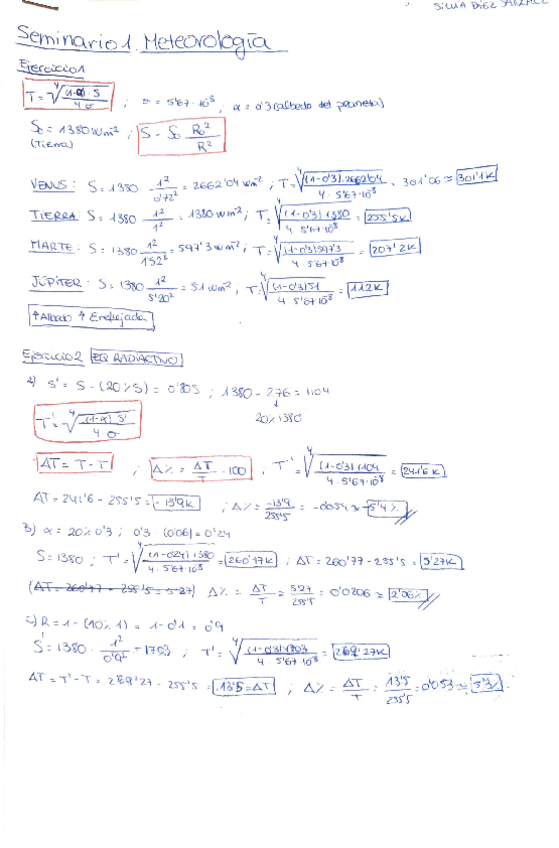 SILVIA DÍEZ
Seminario 1. Meteorología
Ejercicio 1
T = ⁴√((1-α)·S / 4σ) ; σ = 5'67·10⁻⁸ , α = 0'3 (albedo del planeta)
S₀ = 1380 W m⁻² ; S = S₀ R₀²/R²
(Tierra)
VENUS: S = 1380 1²/0'72² = 2662'04 W m⁻² , T = ⁴√((1-0'3)·2662'04 / 4·5'67·10⁻⁸) = 301'06 ≈ 301'1K
TIERRA: S = 1380 1²/1² = 1380 W m⁻² ; T = ⁴√((1-0'3)1380 / 4·5'67·10⁻⁸) = 255'5K
MARTE: S = 1380 1²/1'52² = 597'3 W m⁻² ; T = ⁴√((1-0'3)597'3 / 4·5'67·10⁻⁸) = 207'2K
JÚPITER: S = 1380 1²/5'20² = 51 W m⁻² , T = ⁴√((1-0'3)51 / 4·5'67·10⁻⁸) = 112K
↑ Albedo ↑ Enfriada
Ejercicio 2 EQ RADIACTIVO
a) S' = S - (20% S) = 0'80S ; 1380 - 276 = 1104
20% 1380
T' = ⁴√((1-α) S' / 4σ)
ΔT = T' - T ; Δ% = ΔT/T · 100 , T' = ⁴√((1-0'3)1104 / 4·5'67·10⁻⁸) = 241'6K
ΔT = 241'6 - 255'5 = -13'9K ; Δ% = -13'9/255'5 = -0'054 ≈ -5'4%
b) α = 20% 0'3 ; 0'3 (0'06) = 0'24
S = 1380 ; T' = ⁴√((1-0'24)·1380 / 4·5'67·10⁻⁸) = 260'77K ; ΔT = 260'77 - 255'5 = 5'27K
(ΔT = 260'77 - 255'5 = 5'27) Δ% = ΔT/T = 5'27/255'5 = 0'0206 ≈ 2'06%
c) R = 1 - (10% 1) = 1 - 0'1 = 0'9
S' = 1380 · 1²/0'9² = 1703 ; T' = ⁴√((1-0'3)1703 / 4·5'67·10⁻⁸) = 269'27K
ΔT = T' - T = 269'27 - 255'5 = 13'5 = ΔT ; Δ% = ΔT/T = 13'5/255'5 = 0'053 ≈ 5'3%